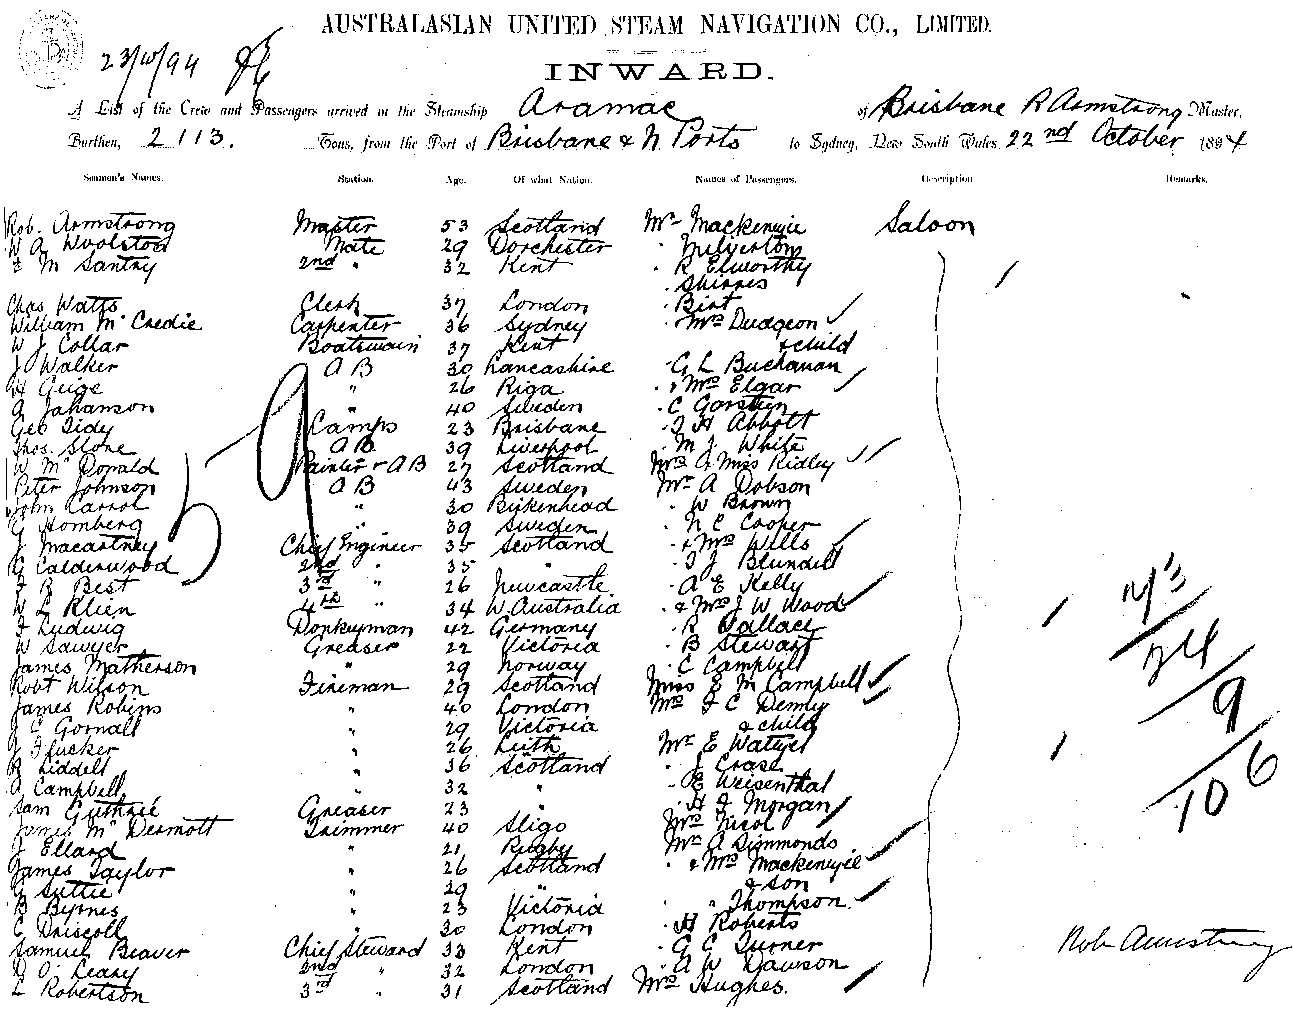 AUSTRALASIAN UNITED STEAM NAVIGATION CO., LIMITED.
23/10/94
INWARD.
A List of the Crew and Passengers arrived in the Steamship Aramac of Brisbane R Armstrong Master,
Burthen, 2113. Tons, from the Port of Brisbane & N. Ports to Sydney, New South Wales 22nd October 1894
Seamen's Names. Station. Age. Of what Nation. Names of Passengers. Description Remarks.
Rob. Armstrong Master 53 Scotland Mr Mackenzie Saloon
W A Woolston Mate 29 Dorchester " Milvertom
M Santry 2nd " 32 Kent " R Elworthy
" Skirres
Chas Watts Clerk 37 London " Birt
William McCredie Carpenter 36 Sydney " Mrs Dudgeon
W J Collar Boatswain 37 Kent & child
J Walker A B 30 Lancashire " G L Buchanan
H Geige " 26 Riga " & Mrs Elgar
A Johanson " 40 Sweden " C Gorstein
Geo Tidy Lamps 23 Brisbane " J H Abbott
Thos. Stone A B 39 Liverpool " M J White
W McDonald Painter & A B 27 Scotland Mrs & Miss Ridley
Peter Johnson A B 43 Sweden Mr A Dobson
John Carrol " 30 Birkenhead " W Brown
G Homberg " 39 Sweden " N E Cooper
J Macartney Chief Engineer 35 Scotland " & Mrs Wills
G Calderwood 2nd " 35 " " T J Blundell
J R Best 3rd " 26 Newcastle " A E Kelly
W L Klien 4th " 34 W. Australia " & Mrs J W Wood
J Ludwig Donkeyman 42 Germany " R Wallace
W Sawyer Greaser 22 Victoria " B Stewart
James Matherson " 29 Norway " C Campbell
Robt Wilson Fireman 29 Scotland Miss E M Campbell
James Robins " 40 London Mrs J C Demly
J C Gornall " 29 Victoria & child
J Flucker " 26 Leith Mr E Watzel
R Liddell " 36 Scotland " J Crase
A Campbell " 32 " " E Weisenthal
Sam Guthrie Greaser 23 " H J Morgan
James McDermott Trimmer 40 Sligo Mrs Nicol
J Ellard " 21 Rugby Mr A Simmonds
James Taylor " 26 Scotland " & Mrs Mackenzie
G Suttie " 29 " & son
B Byrnes " 23 Victoria " " Thompson
C Driscoll " 30 London " H Roberts
Samuel Beaver Chief Steward 33 Kent " G C Turner
D O'Leary 2nd " 32 London " A W Dawson
L Robertson 3rd " 31 Scotland Mrs Hughes.
59
24
9
106
Rob Armstrong